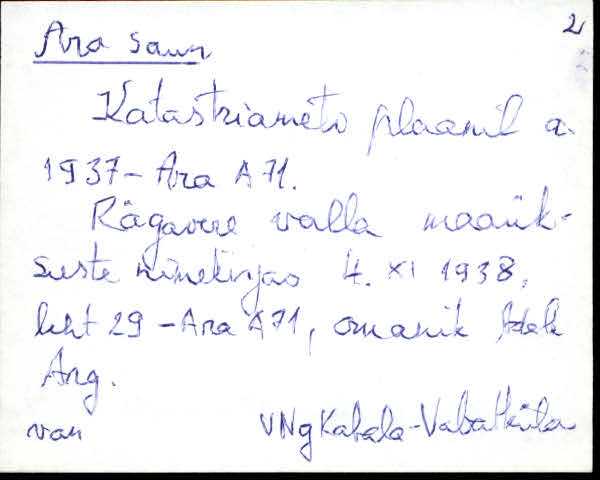 2
Ara saun
Katastriameti plaanil a.
1937 - Ara A71.
Rägavere valla maaük-
suste nimekirjas 4. XI 1938,
leht 29 - Ara A71, omanik Adele
Arg.
van VNg Kabala-Vabatküla